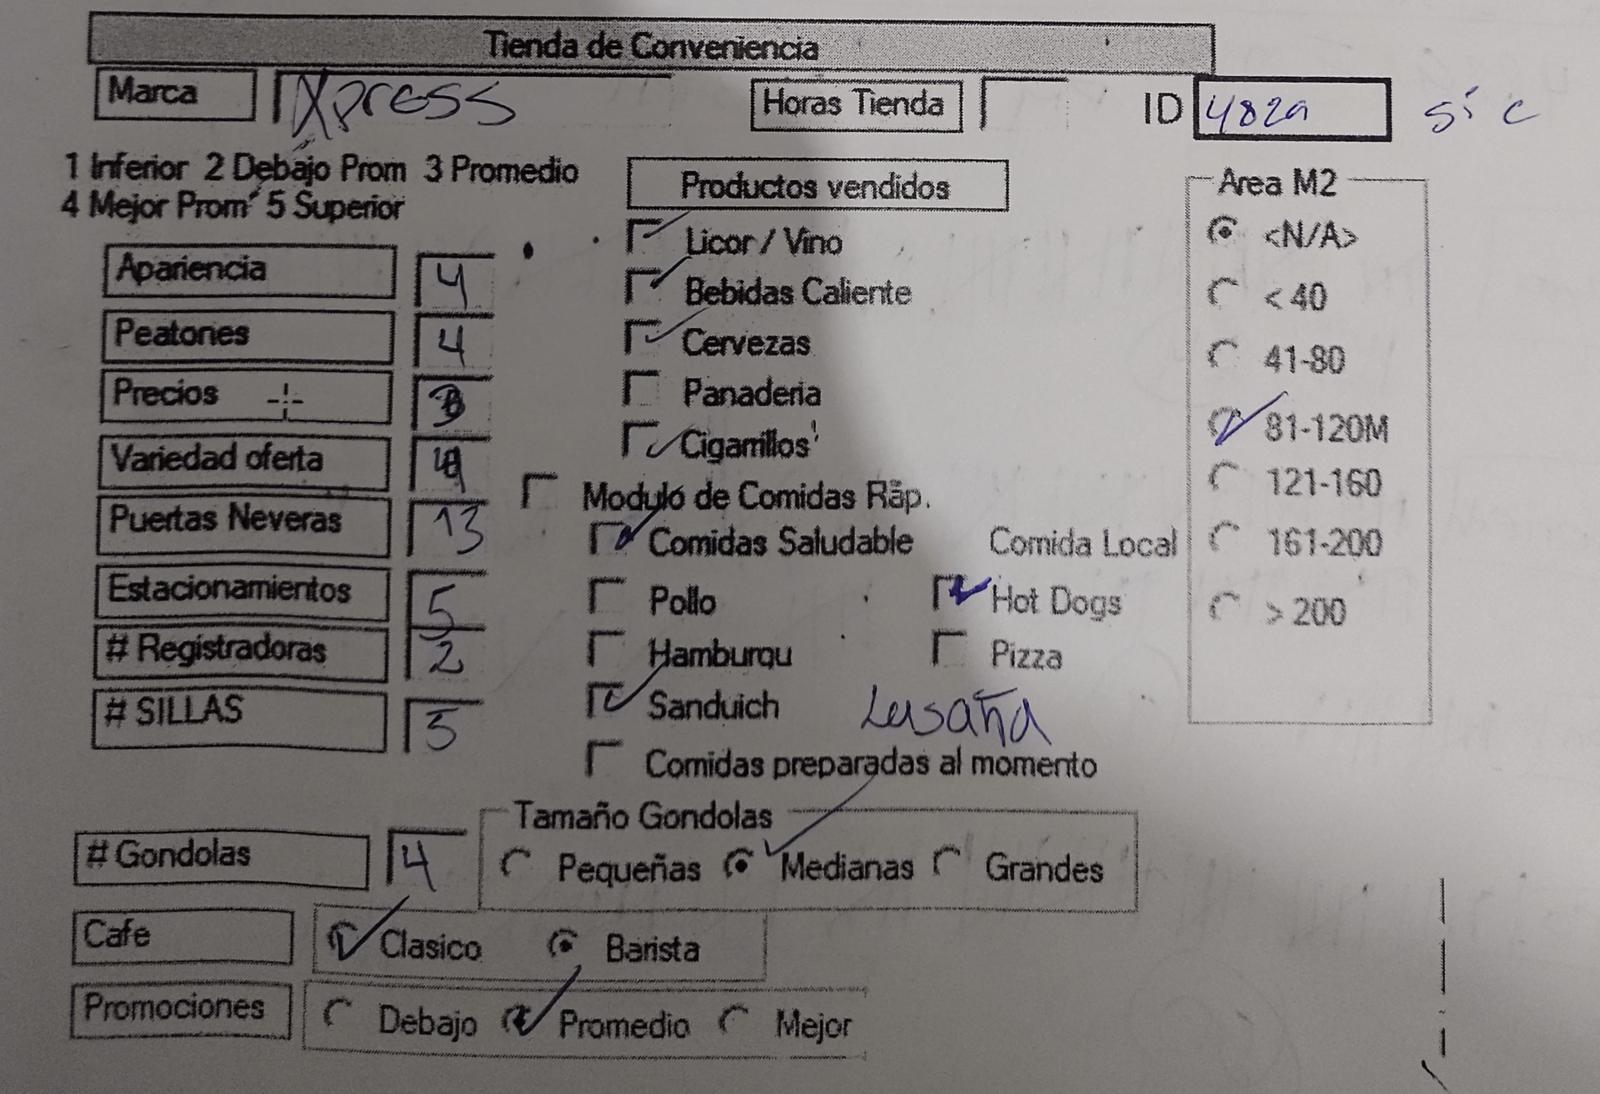 Tienda de Conveniencia
Marca Xpress Horas Tienda ID 4829 sí c
1 Inferior 2 Debajo Prom 3 Promedio
4 Mejor Prom 5 Superior
Productos vendidos
Area M2
Licor / Vino <N/A>
Apariencia 4 Bebidas Caliente < 40
Peatones 4 Cervezas 41-80
Precios 3 Panaderia
Variedad oferta 4 Cigarrillos 81-120M
Modulo de Comidas Ráp. 121-160
Puertas Neveras 13 Comidas Saludable Comida Local 161-200
Estacionamientos 5 Pollo Hot Dogs > 200
# Registradoras 2 Hamburqu Pizza
# SILLAS 5 Sanduich Lasaña
Comidas preparadas al momento
Tamaño Gondolas
# Gondolas 4 Pequeñas Medianas Grandes
Cafe Clasico Barista
Promociones Debajo Promedio Mejor